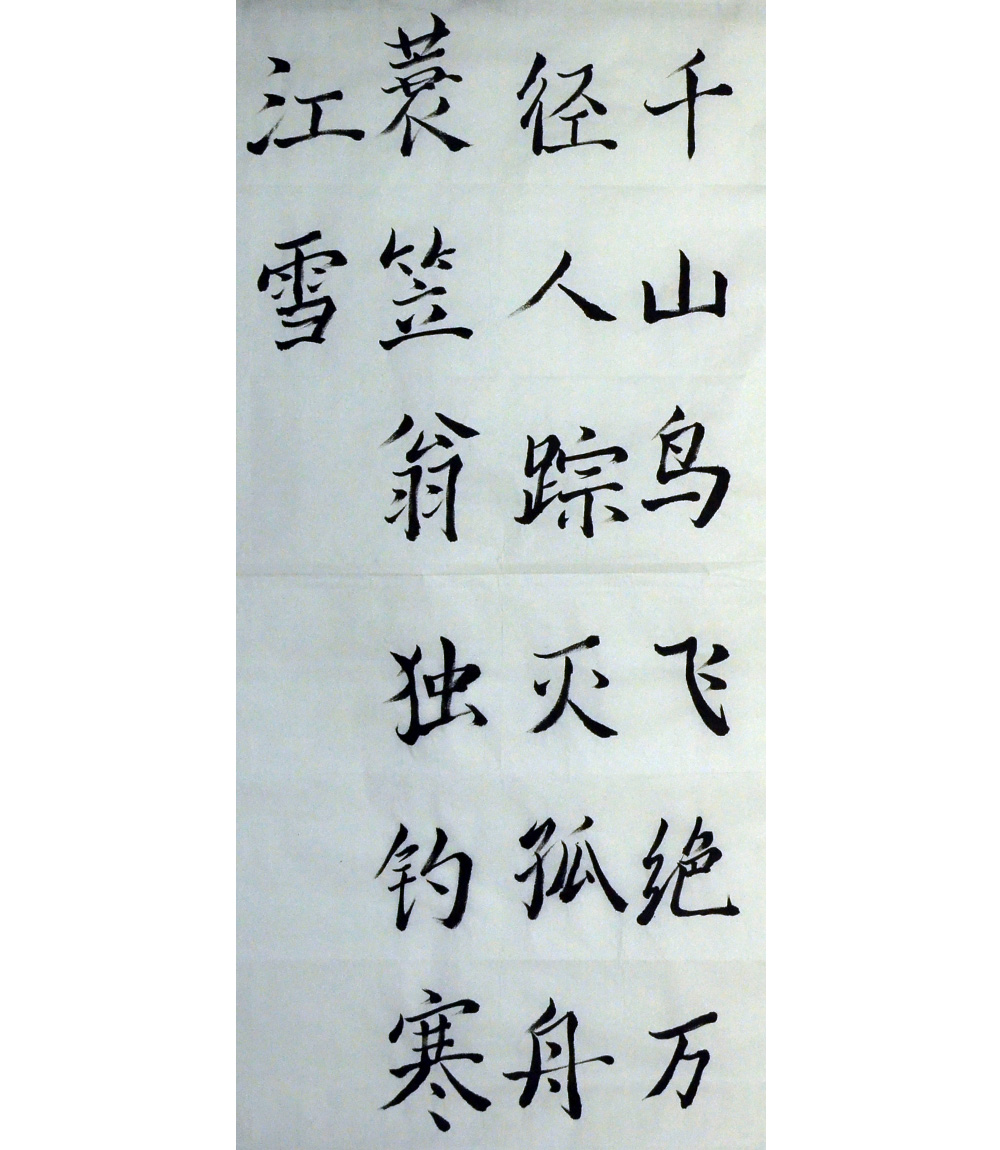 千山鸟飞绝万
径人踪灭孤舟
蓑笠翁独钓寒
江雪